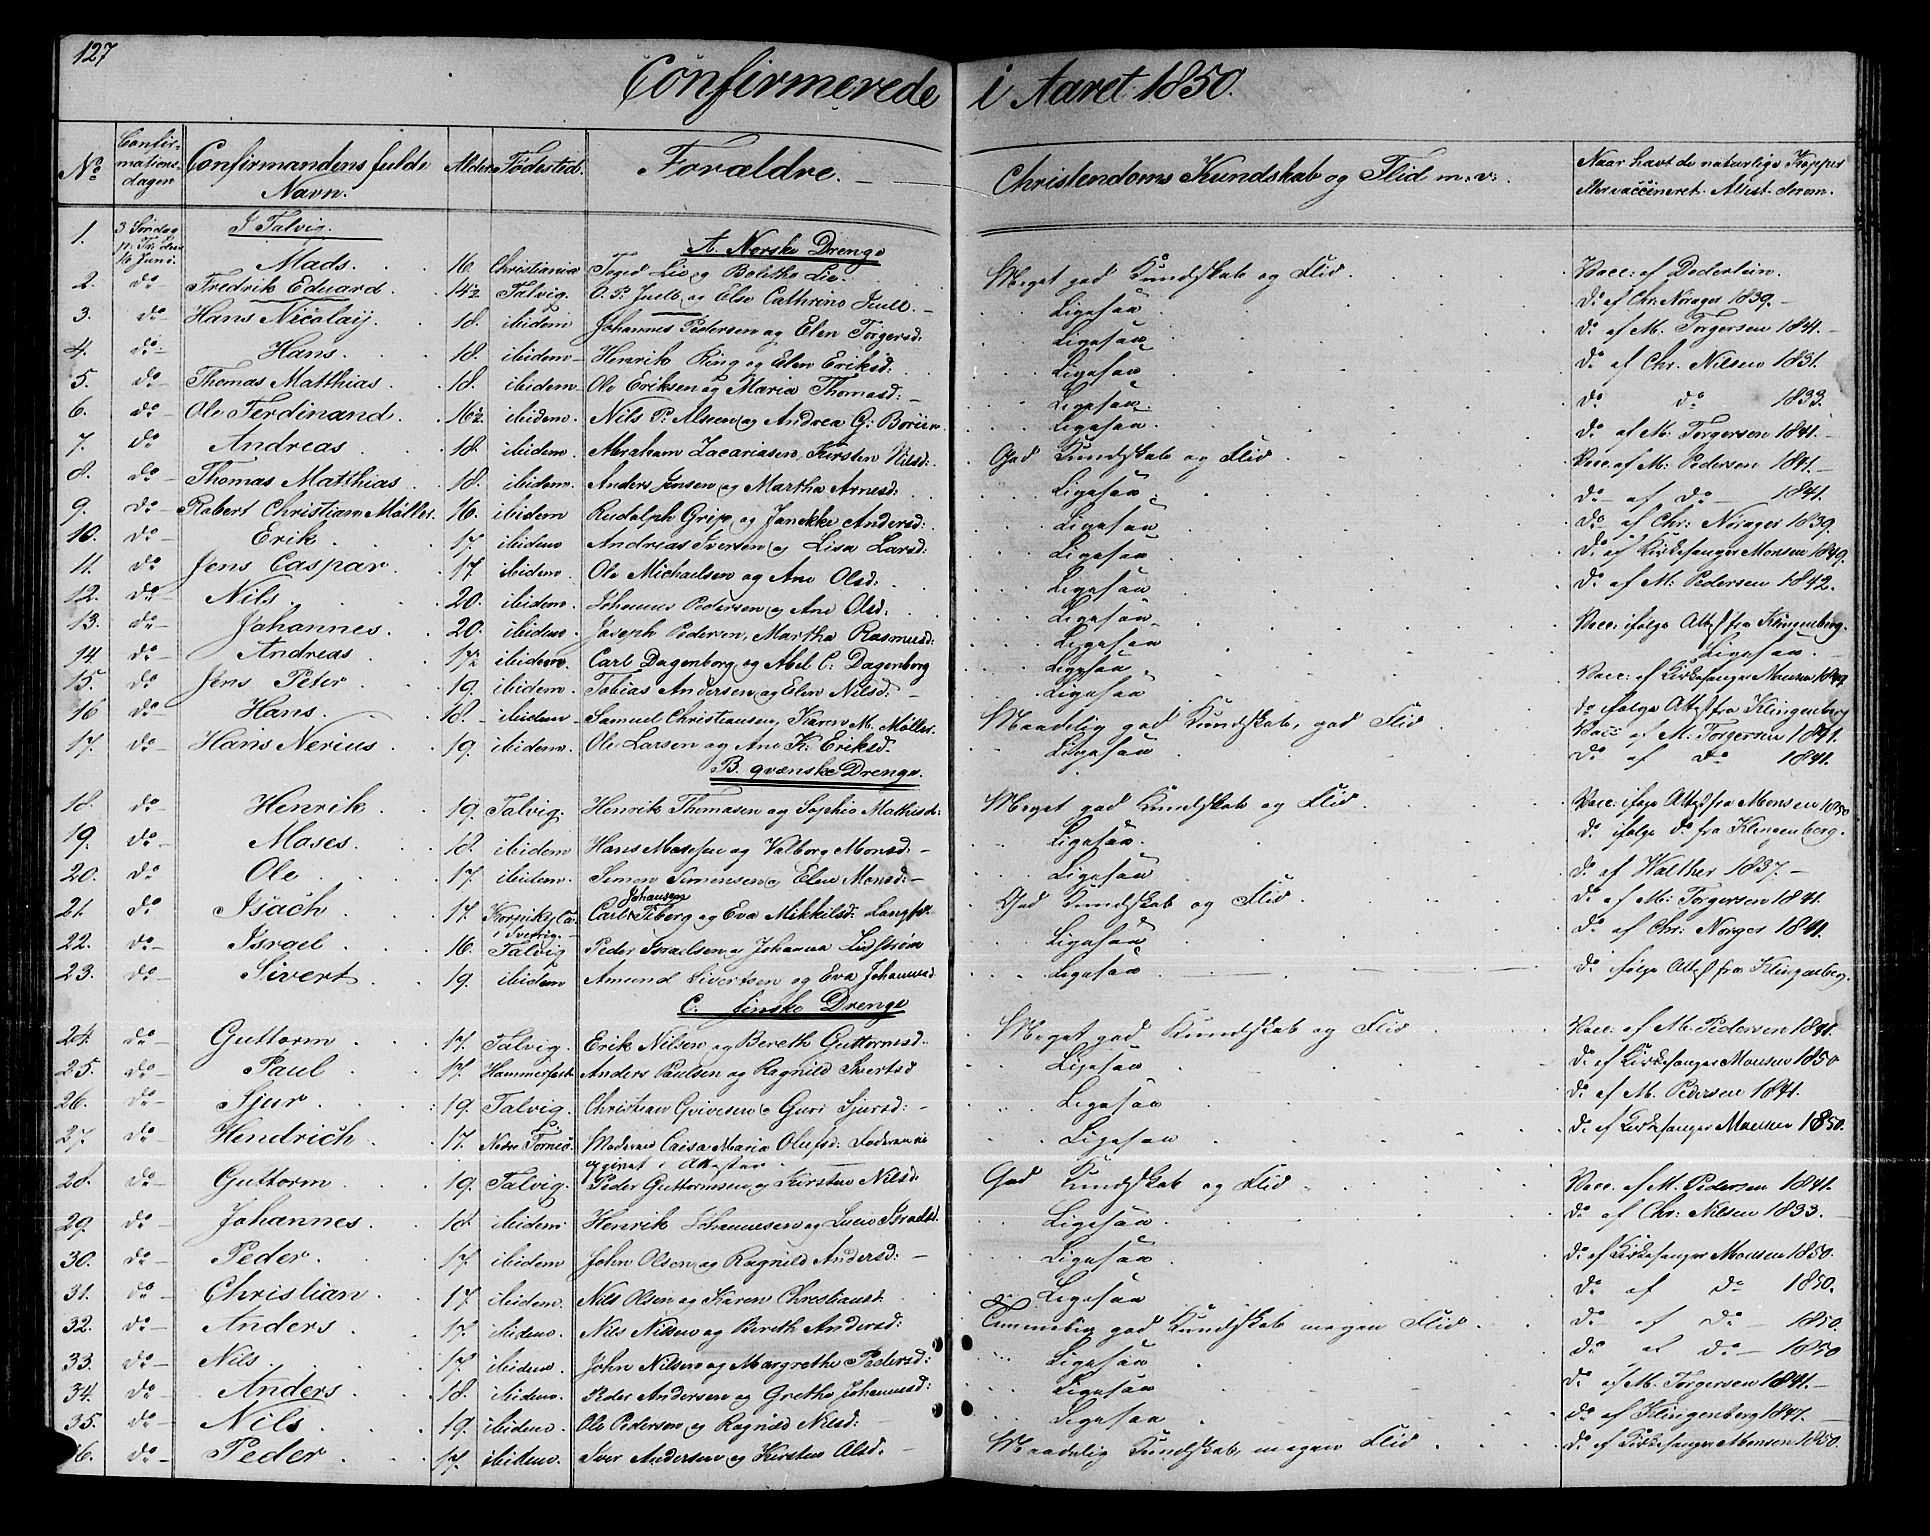 127
Confirmerede i Aaret 1850.
No Confirmationsdagen Confirmandens fulde Navn. Alder Fødested. Forældre. Christendoms Kundskab og Flid m: v: Naar havt de naturlige Kopper eller vaccineret. Attest derom.
I Talvig.
A. Norske Drenge
1. 3 Søndag p. Trin 16 Juni. Mads. 16 Christiania Lie og Lie. Meget god Kundskab og Flid. Vacc: af Dederlein.
2. do Fredrik Eduard. 14½ Talvig. O. P. Juell og Else Cathrine Juell. Ligesaa do af Chr. Norages 1839.
3. do Hans Nicolaij. 18. ibidem Johannes Pedersen og Elen Torgersd: Ligesaa do af M. Torgersen 1834.
4. do Hans. 18. ibidem Henrik Ring og Elen Eriksd: Ligesaa do af Chr. Nilsen 1831.
5. do Thomas Matthias. 18. ibidem Ole Eriksen og Maria Thomasd: Ligesaa do do 1833.
6. do Ole Ferdinand. 16½ ibidem. Nils P. Alsen og Andrea G: Ligesaa. do af M: Torgersen 1841.
7. do Andreas 18. ibidem. Abraham Zacariasen, Kirsten Nilsd: God Kundskab og Flid Vacc. af M: Pedersen 1841.
8. do Thomas Matthias. 18. ibidem. Anders Jensen og Martha Arnesd: Ligesaa do af do 1841.
9. do Robert Christian Møller. 16. ibidem Rudolph Grip og Janekke Andersd: Ligesaa do af Chr: Norages 1839
10. do Erik. 17. ibidem Andreas Iversen og Lisa Larsd: Ligesaa do af Kirkesanger Monsen 1849.
11. do Jens Caspar. 17 ibidem. Ole Michaelsen og Ane Olsd: Ligesaa do af M: Pedersen 1842.
12. do Nils. 20. ibidem. Johannes Pedersen og Ane Olsd: Ligesaa Vacc: ifølge Attest fra Klingenberg.
13. do Johannes. 20. ibidem. Joseph Pedersen, Martha Rasmusd: Ligesaa Ligesaa.
14. do Andreas 17½ ibidem. Carl Dagenborg og Abel C: Dagenborg Ligesaa Vacc: af Kirkesanger Monsen 1849
15. do Jens Peter 19. ibidem. Tobias Andersen og Elen Nilsd: Ligesaa do ifølge Attest fra Klingenberg
16 do Hans. 18. ibidem. Samuel Christiansen, Karen M. Møller. Maadelig god Kundskab, god Flid Vacc: af M. Torgersen 1841.
17. do Hans Nerius 19. ibidem. Ole Larsen og Ane K: Eriksd. Ligesaa do af do 1841.
B. qvænske Drenge.
18. do Henrik 19. Talvig. Henrik Thomasen og Sophie Mathisd: Meget god Kundskab og Flid. Vacc: ifølge Attest fra Monsen 1850
19. do Moses. 18. ibidem Hans Mosesen og Valborg Monsd: Ligesaa. do ifølge do fra Klingenberg.
20. do Ole 17. ibidem. Simon Simonsen og Elen Monsd: Ligesaa do af Walther 1837.
21. do Isach 17. i Sverrig. Carl Johansen og Eva Mikkelsd: God Kundskab og Flid. do af M. Torgersen 1841.
22. do Israel 16. Talvig Peder Israelsen og Johanna Ligesaa do af Chr: Norges 1841.
23. do Sivert 19. ibidem Amund Sivertsen og Eva Johannesd Ligesaa do ifølge Attest fra Klingenberg.
C. finske Drenge
24. do Guttorm 17. Talvig. Erik Nilsen og Bereth Guttormsd. Meget god Kundskab og Flid Vacc: af M. Pedersen 1841.
25. do Paul 17. Hammerfest Anders Paulsen og Ragnild Sivertsd Ligesaa do af Kirkesanger Monsen 1850
26. do Sjur 19. Talvig. Christian og Guri Sjursd: Ligesaa do af M. Pedersen 1841.
27. do Hendrich 17. Nedre Torneå. Moderen Caisa Maria Olufsd: Faderen ei opgivet i Attesten. Ligesaa do af Kirkesanger Monsen 1850.
28. do Guttorm 19. Talvig. Peder Guttormsen og Kirsten Nilsd. God Kundskab og Flid Vacc. af M. Pedersen 1841.
29. do Johannes. 18. ibidem. Henrik Johannesen og Israelsd. Ligesaa. do af Chr. Nilsen 1833.
30. do Peder. 17. ibidem John Olsen og Ragnild Andersd: Ligesaa do af Kirkesanger Monsen 1850.
31. do Christian. 17. ibidem. Nils Olsen og Karen Christiansd. Ligesaa do af do 1850.
32. do Anders. 17. ibidem. Nils Nilsen og Bereth Andersd: Temmelig god Kundskab megen Flid. do af do 1850.
33. do Nils. 17 ibidem. John Nilsen og Margrethe Pedersd: Ligesaa do af do 1850
34. do Anders 18. ibidem. Peder Andersen og Grethe Johannesd: Ligesaa do af M. Torgersen 1841.
35. do Nils. 19. ibidem. Ole Pedersen og Ragnild Nilsd: Ligesaa do af Klingenberg 1847.
36. do Peder 17. ibidem. Iver Andersen og Kirsten Olsd. Maadelig Kundskab megen Flid do af Kirkesanger Monsen 1850.